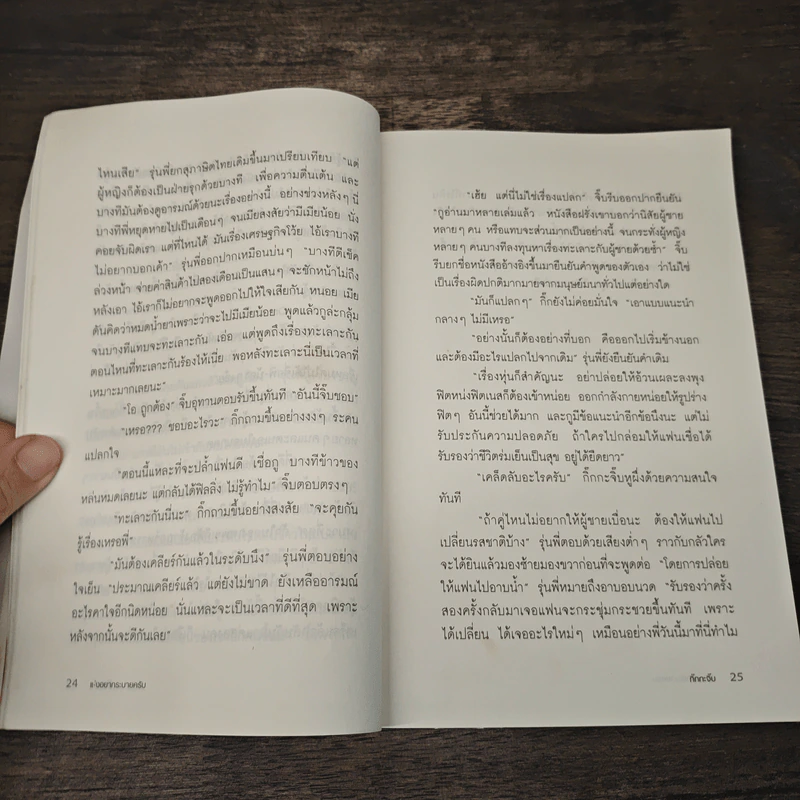 ไหนเสีย" รุ่นพี่ยกสุภาษิตไทยเดิมขึ้นมาเปรียบเทียบ "แต่
ผู้หญิงก็ต้องเป็นฝ่ายรุกด้วยบางที เพื่อความตื่นเต้น และ
บางทีมันต้องดูอารมณ์ด้วยนะเรื่องอย่างนี้ อย่างช่วงหลังๆ นี่
บางทีพี่หยุดหายไปเป็นเดือนๆ จนเมียสงสัยว่ามีเมียน้อย นั่ง
คอยจับผิดเรา แต่ที่ไหนได้ มันเรื่องเศรษฐกิจโว้ย ไอ้เราบางที
ไม่อยากบอกเค้า" รุ่นพี่ออกปากเหมือนบ่นๆ "บางทีตีเช็ค
ล่วงหน้า จ่ายค่าสินค้าไปสองเดือนเป็นแสนๆ จะชักหน้าไม่ถึง
หลังเอา ไอ้เราก็ไม่อยากจะพูดออกไปให้ใจเสียกัน หนอย เมีย
ดันคิดว่าหมดน้ำยาเพราะว่าจะไปมีเมียน้อย พูดแล้วกูล่ะกลุ้ม
จนบางทีแทบจะทะเลาะกัน เอ่อ แต่พูดถึงเรื่องทะเลาะกัน
ตอนไหนที่ทะเลาะกันร้องไห้เนี่ย พอหลังทะเลาะนี่เป็นเวลาที่
เหมาะมากเลยนะ"
"โอ ถูกต้อง" จิ๊บอุทานตอบรับขึ้นทันที "อันนี้จิ๊บชอบ"
"เหรอ??? ชอบอะไรวะ" กิ๊กถามขึ้นอย่างงงๆ ระคน
แปลกใจ
"ตอนนี้แหละที่จะปล้ำแฟนดี เชื่อกู บางทีข้าวของ
หล่นหมดเลยนะ แต่กลับได้ฟิลลิ่ง ไม่รู้ทำไม" จิ๊บตอบตรงๆ
"ทะเลาะกันนี่นะ" กิ๊กถามขึ้นอย่างสงสัย "จะคุยกัน
รู้เรื่องเหรอพี่"
"มันต้องเคลียร์กันแล้วในระดับนึง" รุ่นพี่ตอบอย่าง
ใจเย็น "ประมาณเคลียร์แล้ว แต่ยังไม่ขาด ยังเหลืออารมณ์
อะไรคาใจอีกนิดหน่อย นั่นแหละจะเป็นเวลาที่ดีที่สุด เพราะ
หลังจากนั้นจะดีกันเลย"
24 แค่อยากระบายครับ
"เฮ้ย แต่นี่ไม่ใช่เรื่องแปลก" จิ๊บรีบออกปากยืนยัน
"กูอ่านมาหลายเล่มแล้ว หนังสือฝรั่งเขาบอกว่านิสัยผู้ชาย
หลายๆ คน หรือแทบจะส่วนมากเป็นอย่างนี้ จนกระทั่งผู้หญิง
หลายๆ คนบางทีลงทุนหาเรื่องทะเลาะกับผู้ชายด้วยซ้ำ" จิ๊บ
รีบยกชื่อหนังสืออ้างอิงขึ้นมายืนยันคำพูดของตัวเอง ว่าไม่ใช่
เป็นเรื่องผิดปกติมากมายจากมนุษย์มนาทั่วไปแต่อย่างใด
"มันก็แปลกๆ" กิ๊กยังไม่ค่อยมั่นใจ "เอาแบบแนะนำ
กลางๆ ไม่มีเหรอ"
"อย่างนั้นก็ต้องอย่างที่บอก คือออกไปเริ่มข้างนอก
และต้องมีอะไรแปลกไปจากเดิม" รุ่นพี่ยังยืนยันคำเดิม
"เรื่องหุ่นก็สำคัญนะ อย่าปล่อยให้อ้วนเผละลงพุง
ฟิตหน่งฟิตเนสก็ต้องเข้าหน่อย ออกกำลังกายหน่อยให้รูปร่าง
ฟิตๆ อันนี้ช่วยได้มาก และกูมีข้อแนะนำอีกข้อนึงนะ แต่ไม่
รับประกันความปลอดภัย ถ้าใครไปกล่อมให้แฟนเชื่อได้
รับรองว่าชีวิตร่มเย็นเป็นสุข อยู่ได้ยืดยาว"
"เคล็ดลับอะไรครับ" กิ๊กกะจิ๊บหูผึ่งด้วยความสนใจ
ทันที
"ถ้าคู่ไหนไม่อยากให้ผู้ชายเบื่อนะ ต้องให้แฟนไป
เปลี่ยนรสชาติบ้าง" รุ่นพี่ตอบด้วยเสียงต่ำๆ ราวกับกลัวใคร
จะได้ยินแล้วมองซ้ายมองขวาก่อนที่จะพูดต่อ "โดยการปล่อย
ให้แฟนไปอาบน้ำ" รุ่นพี่หมายถึงอาบอบนวด "รับรองว่าครั้ง
สองครั้งกลับมาเจอแฟนจะกระชุ่มกระชวยขึ้นทันที เพราะ
ได้เปลี่ยน ได้เจออะไรใหม่ๆ เหมือนอย่างพี่วันนี้มาที่นี่ทำไม
กิ๊กกะจิ๊บ 25